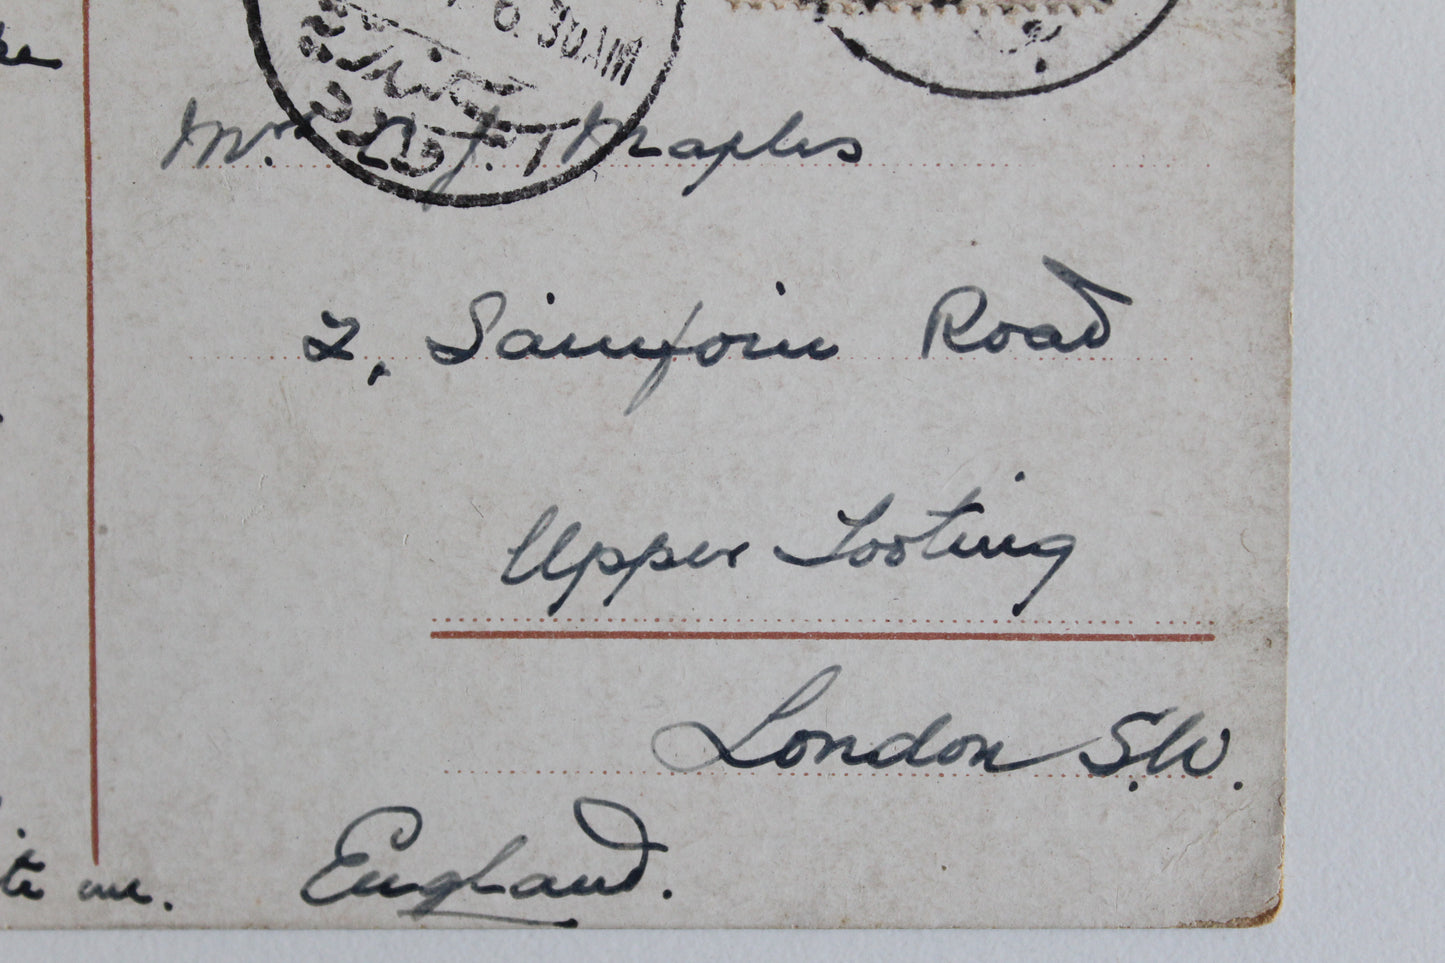 6 30 AM
Mr. J. Maples
2, Sainfoin Road
Upper Tooting
London S.W.
England.
me.